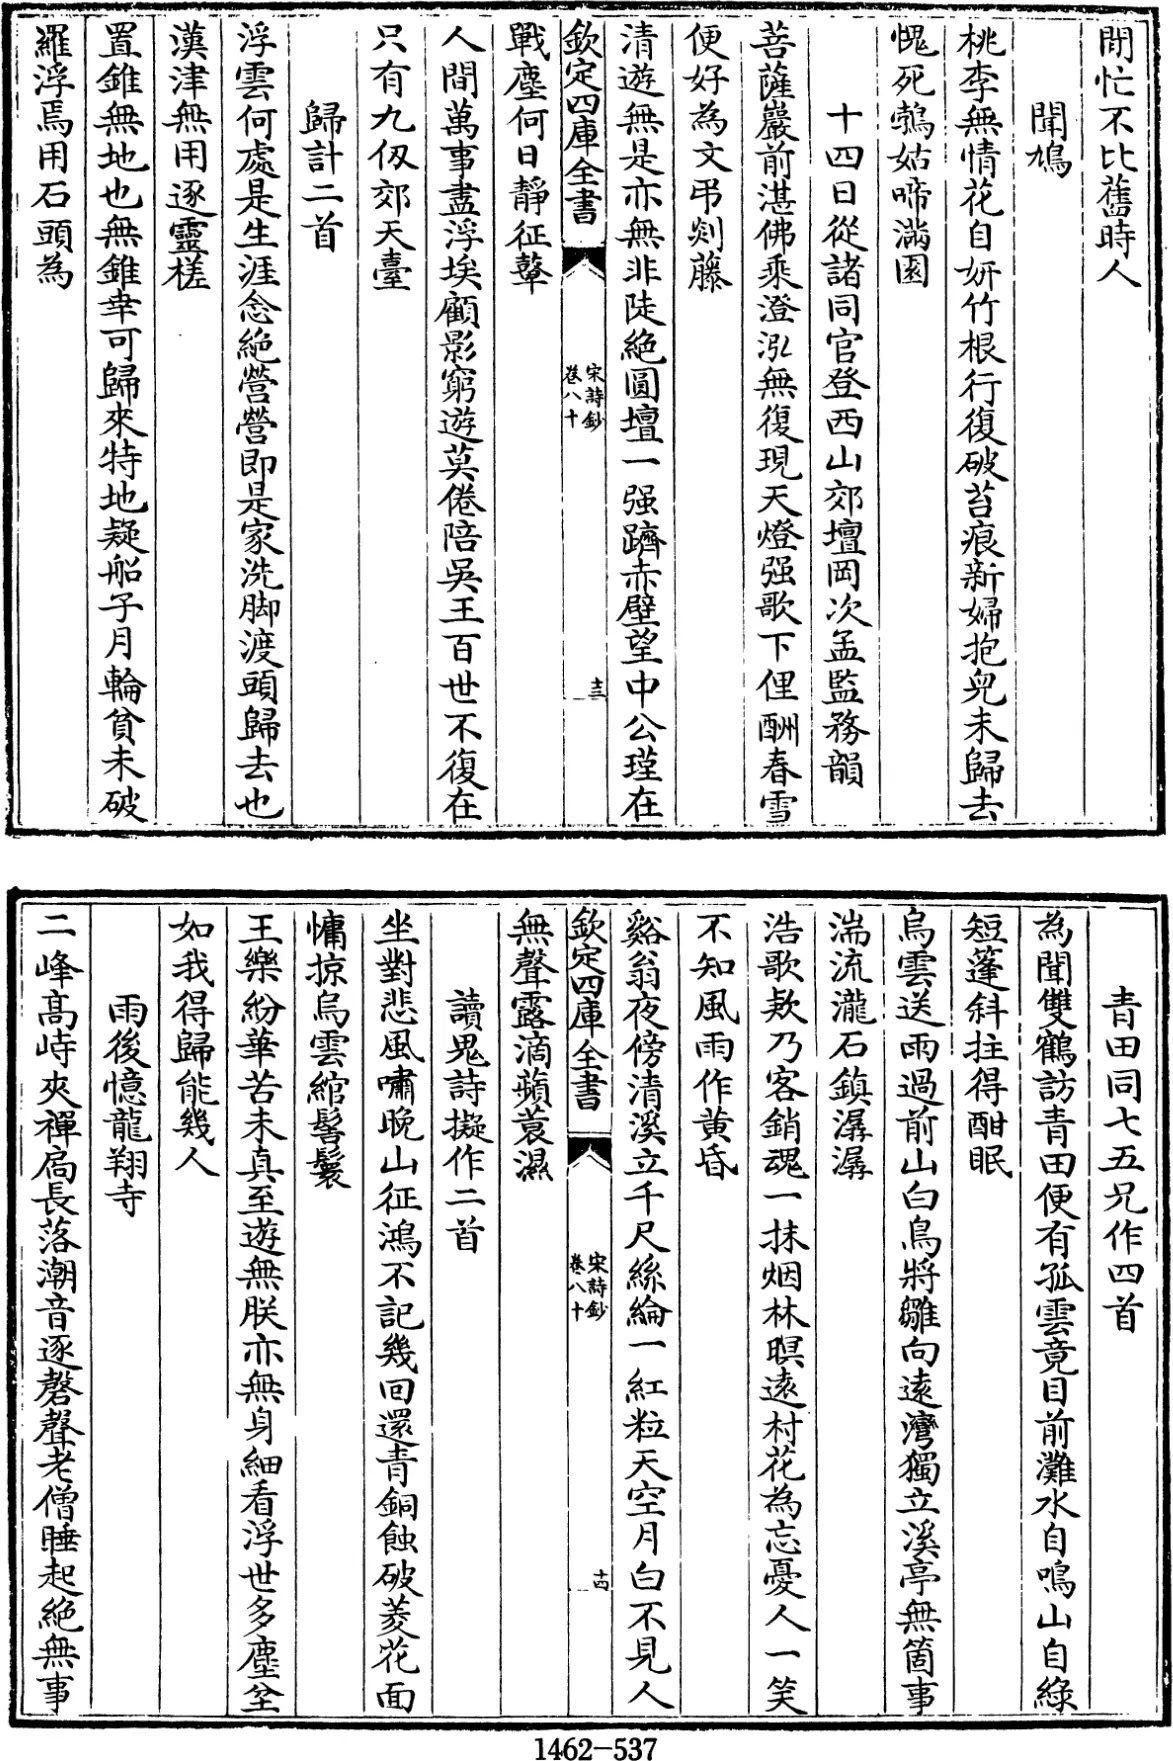 閒忙不比舊時人
聞鳩
桃李無情花自妍竹根行復破苔痕新婦抱兒未歸去
愧死鵓姑啼滿園
十四日從諸同官登西山郊壇岡次孟監務韻
菩薩巖前湛佛乘澄泓無復現天燈强歌下俚酬春雪
便好為文弔剡藤
清遊無是亦無非陡絶圓壇一强躋赤壁望中公瑾在
欽定四庫全書
宋詩鈔
卷八十
十三
戰塵何日靜征鼙
人間萬事盡浮埃顧影窮遊莫倦陪吳王百世不復在
只有九仭郊天臺
歸計二首
浮雲何處是生涯念絶營營即是家洗脚渡頭歸去也
漢津無用逐靈槎
置錐無地也無錐幸可歸來特地疑船子月輪貧未破
羅浮焉用石頭為
青田同七五兄作四首
為聞雙鶴訪青田便有孤雲竟目前灘水自鳴山自綠
短蓬斜拄得酣眠
烏雲送雨過前山白鳥將雛向遠灣獨立溪亭無箇事
湍流瀧石鎮潺潺
浩歌欵乃客銷魂一抹烟林暝遠村花為忘憂人一笑
不知風雨作黄昏
谿翁夜傍清溪立千尺絲綸一紅粒天空月白不見人
欽定四庫全書
宋詩鈔
卷八十
十四
無聲露滴蘋蓑濕
讀鬼詩擬作二首
坐對悲風嘯晚山征鴻不記幾回還青銅蝕破菱花面
慵掠烏雲綰髻鬟
王樂紛華苦未真至遊無朕亦無身細看浮世多塵坌
如我得歸能幾人
雨後憶龍翔寺
二峰高峙夾禪扃長落潮音逐磬聲老僧睡起絶無事
1462-537